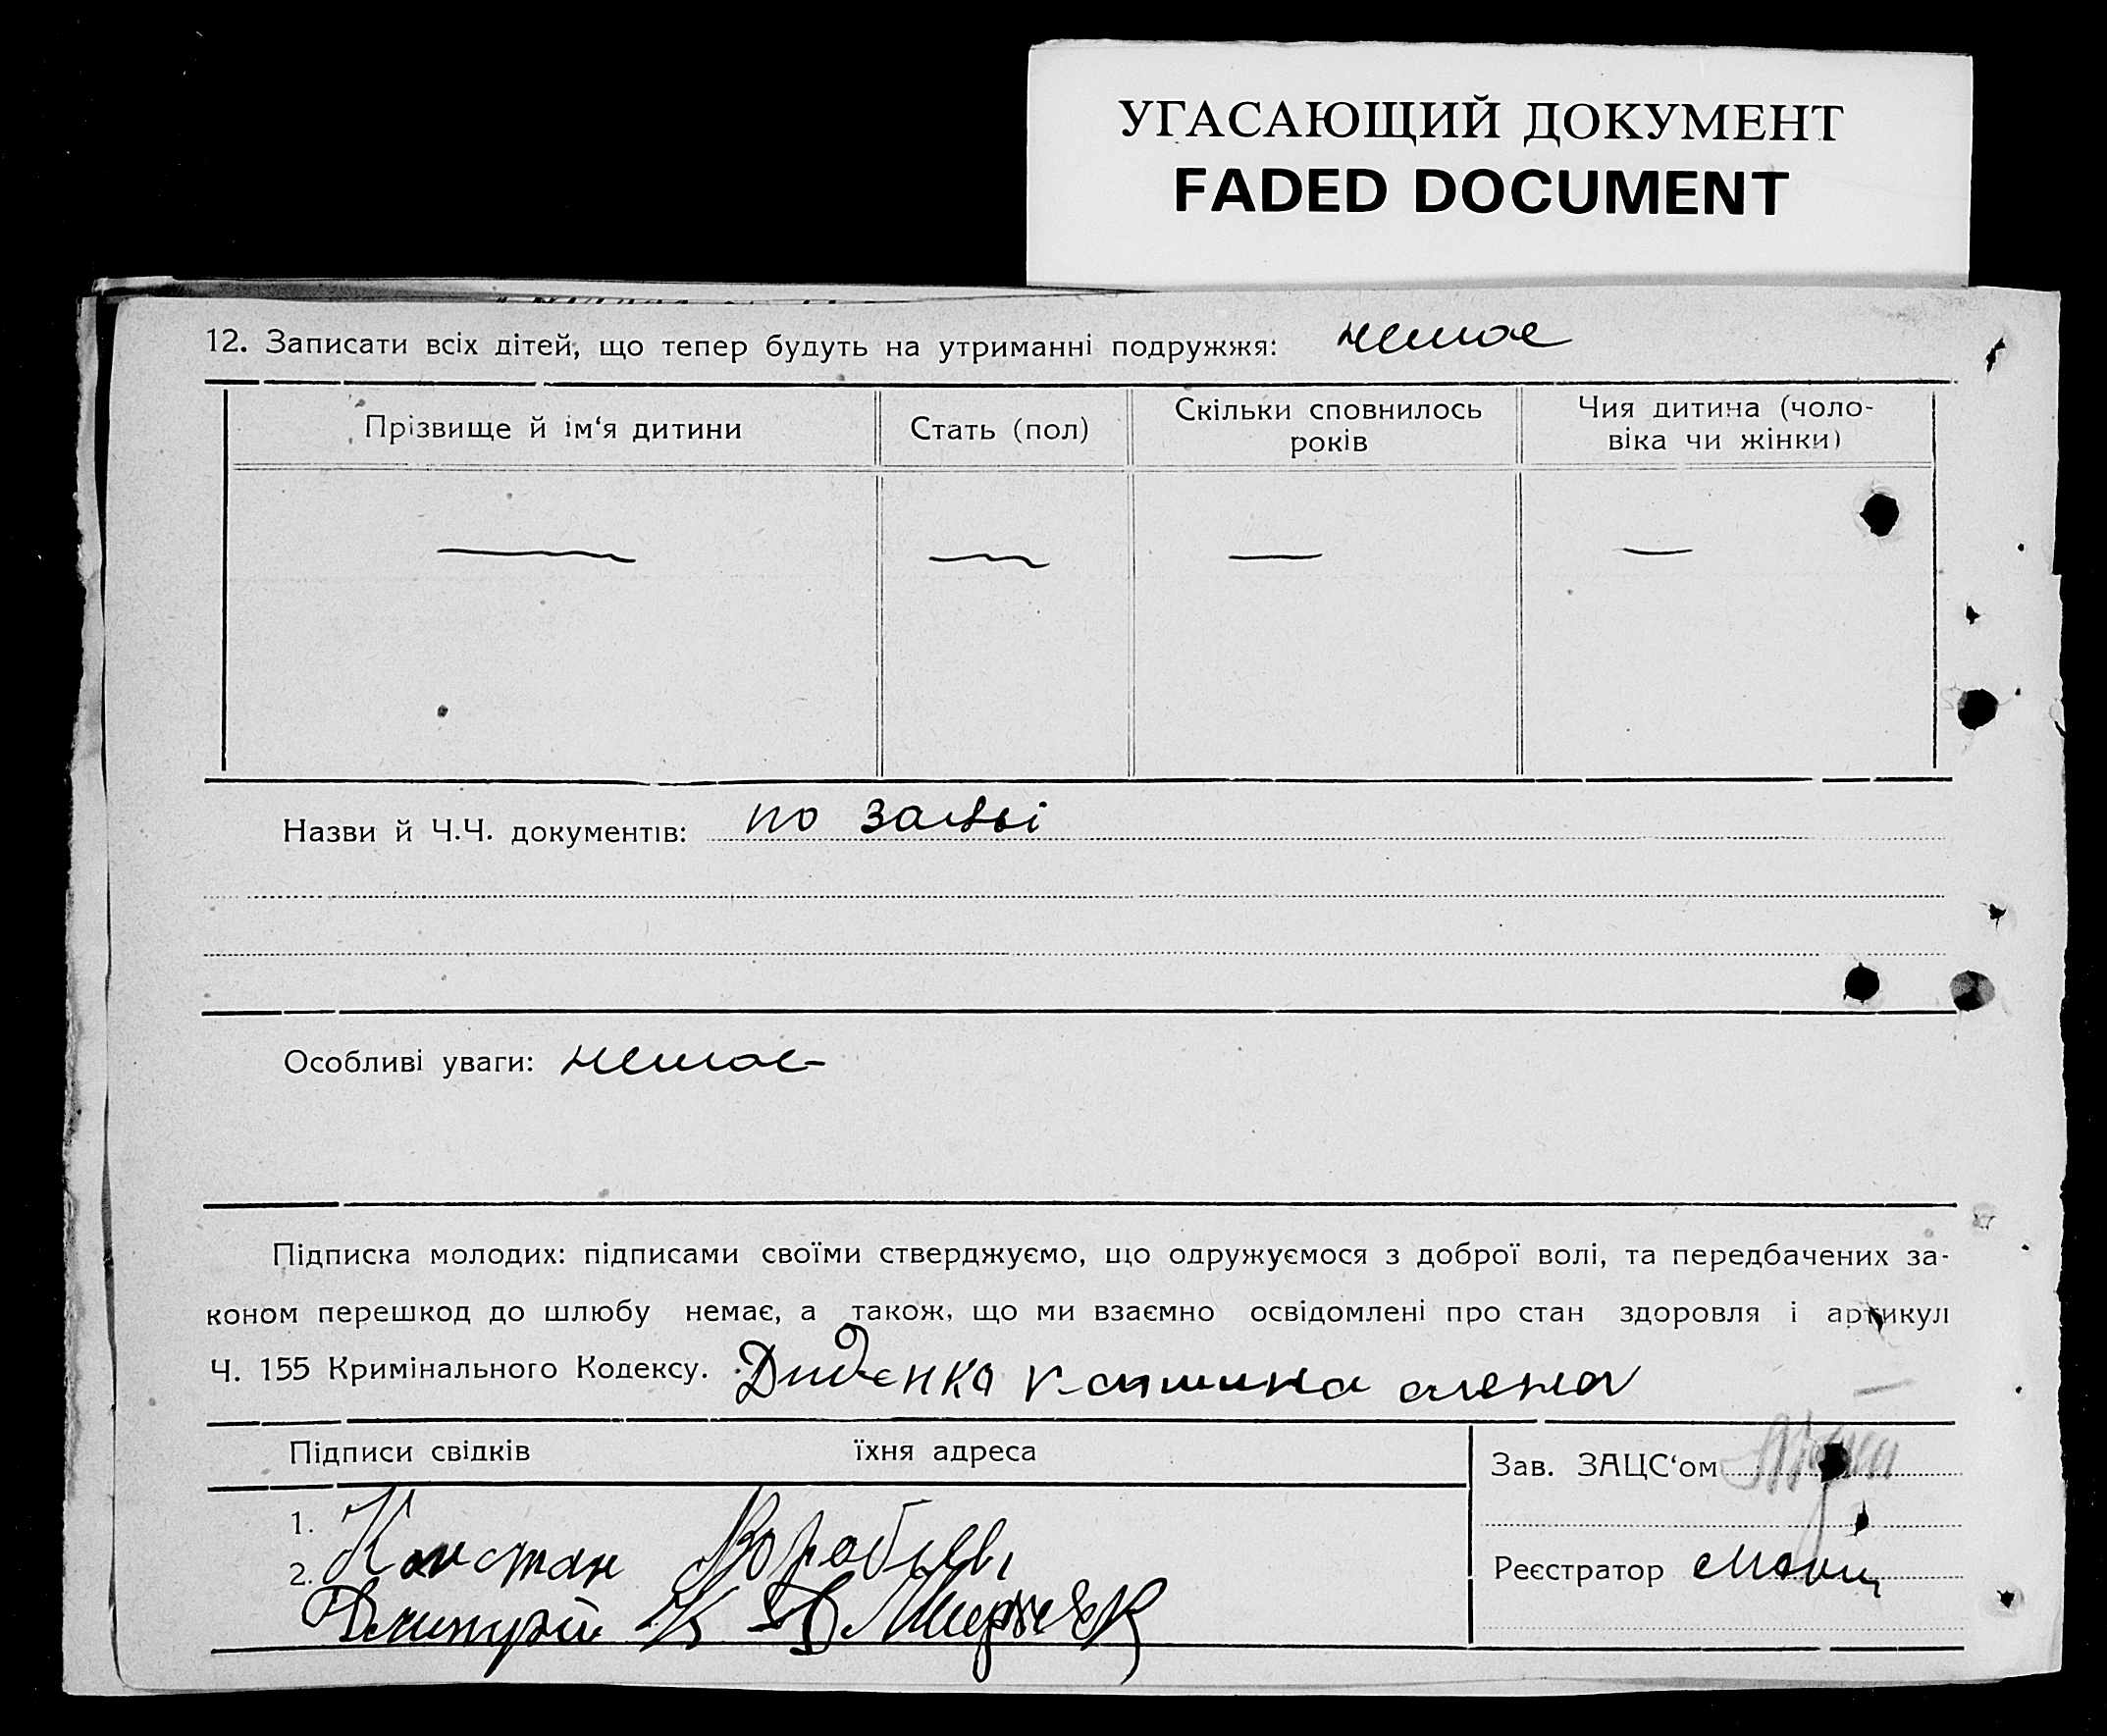 УГАСАЮЩИЙ ДОКУМЕНТ
FADED DOCUMENT
12. Записати всіх дітей, що тепер будуть на утриманні подружжя: немає
Прізвище й ім‘я дитини
Стать (пол)
Скільки сповнилось
років
Чия дитина (чоло-
віка чи жінки)
Назви й Ч.Ч. документів: по заяві
Особливі уваги: немає
Підписка молодих: підписами своїми стверджуємо, що одружуємося з доброї волі, та передбачених за-
коном перешкод до шлюбу немає, а також, що ми взаємно освідомлені про стан здоровля і артикул
Ч. 155 Кримінального Кодексу. Диденко
Підписи свідків їхня адреса
Зав. ЗАЦС‘ом
1.
2.
Дмитрій
Реєстратор